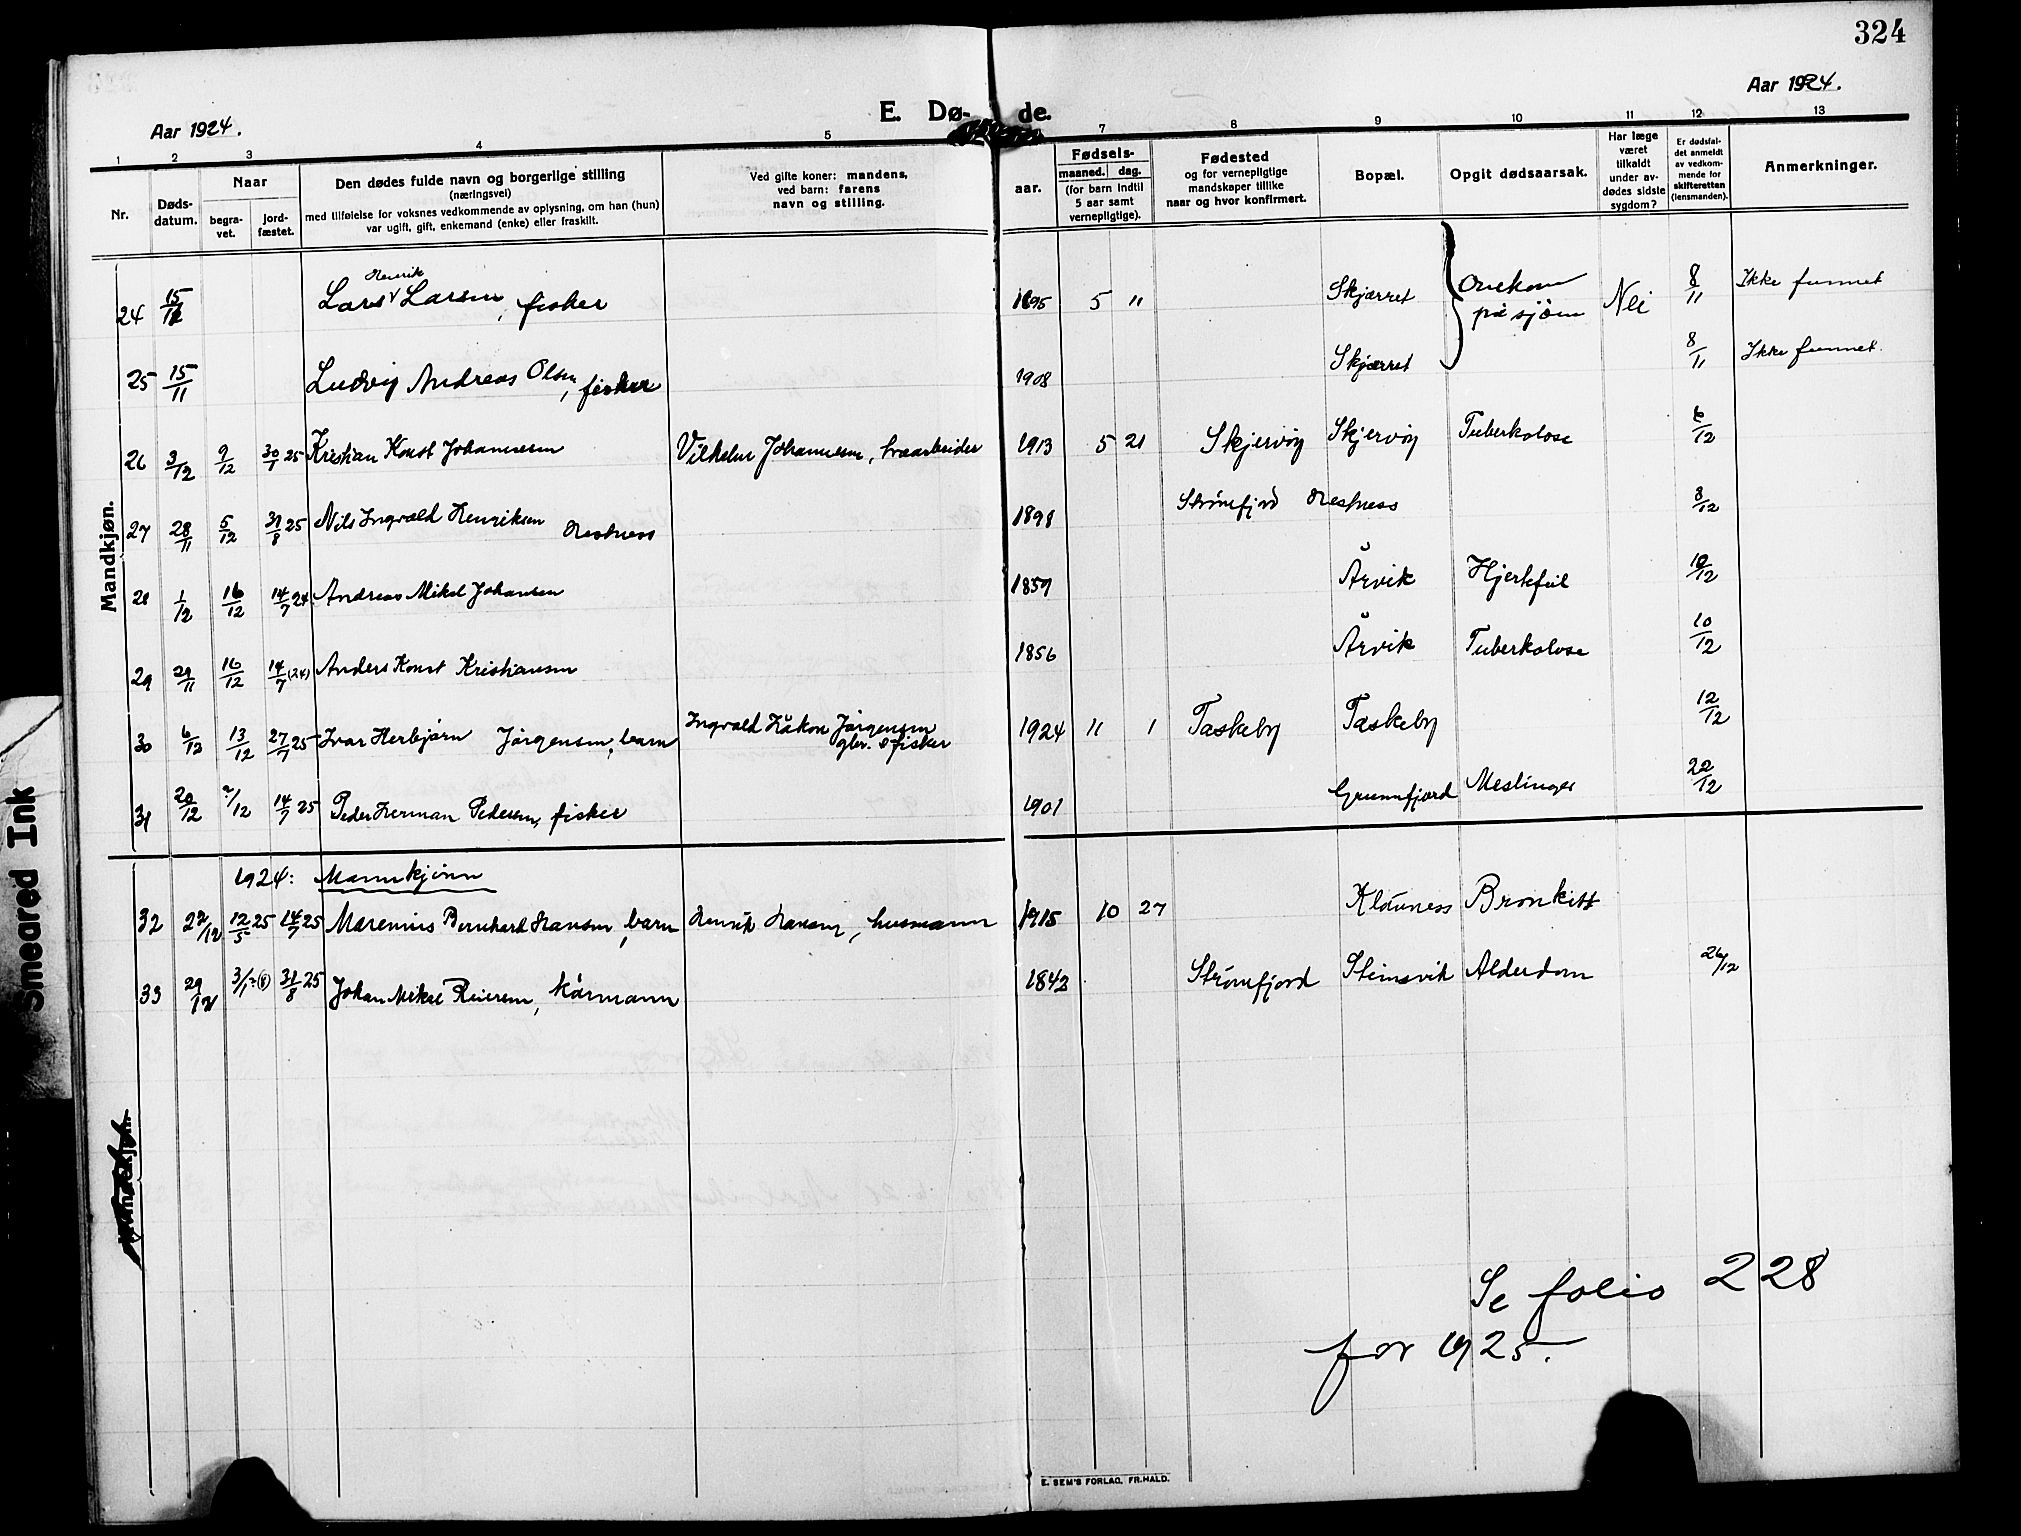 324
Aar 1924.
Aar 1924.
E. Dø- de.
1 2 3 4 5 7 8 9 10 11 12 13
Nr.
Døds-
datum.
Naar
begra-
vet.
jord-
fæstet.
Den dødes fulde navn og borgerlige stilling
(næringsvei)
med tilføielse for voksnes vedkommende av oplysning, om han (hun)
var ugift, gift, enkemand (enke) eller fraskilt.
Ved gifte koner: mandens,
ved barn: farens
navn og stilling.
Fødsels-
aar.
maaned. dag.
(for barn indtil
5 aar samt
vernepligtige).
Fødested
og for vernepligtige
mandskaper tillike
naar og hvor konfirmert.
Bopæl.
Opgit dødsaarsak.
Har læge
været
tilkaldt
under av-
dødes sidste
sygdom?
Er dødsfal-
det anmeldt
av vedkom-
mende for
skifteretten
(lensmanden).
Anmerkninger.
Mandkjøn.
Henrik
24 15/11 Lars Larsen, fisker 1895 5 " Skjærret Omkom på sjøen Nei 8/11 Ikke funnet
25 15/11 Ludvig Andreas Olsen, fisker 1908 Skjærret 8/11 Ikke funnet.
26 3/12 9/12 30/1 25 Kristian Konst Johannesen Vilhelm Johannesen, 1913 5 21 Skjervøy Skjervøy Tuberkolose 6/12
27 28/11 5/12 31/8 25 Nils Ingvald Henriksen Hestness 1898 Strømfjord Hestness 8/12
28 1/12 16/12 14/7 24 Andreas Mikal Johansen 1859 Årvik Hjertefeil 10/12
29 29/11 16/12 14/7 (24) Anders Konst Kristiansen 1856 Årvik Tuberkolose 10/12
30 6/12 13/12 27/7 25 Ivar Herbjørn Jørgensen, barn Ingvald Håkon Jørgensen 1924 11 1 Taskeby Taskeby 12/12
gbr. & fisker
31 20/12 ?/12 14/7 25 Peder Herman Pedersen, fisker 1901 Grunnfjord Meslinger 22/12
1924: Mannkjønn
32 22/12 12/5 25 14/7 25 Marenius Bernhard Hansen, barn Henrik Hansen, husmann 1915 10 27 Klauvness Bronkitt
33 29/12 31/8 25 Johan Mikal Reiersen, kårmann 1842 Strømfjord Steinsvik Alderdom 26/12
Se folio 228
for 1925.
E. SEM'S FORLAG, FR.HALD.
Smeared Ink